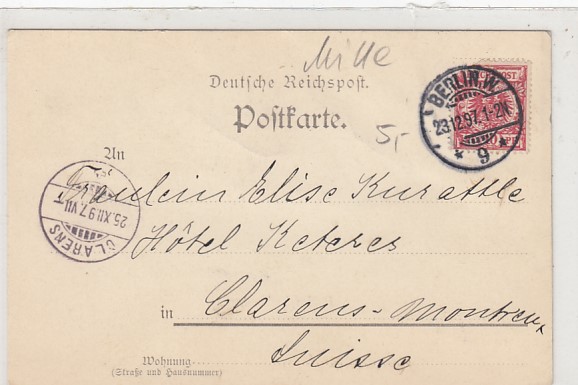 Mille
Deutsche Reichspost.
Postkarte.
5,-
BERLIN, W.
23.12.97.1-2N.
* 9 *
An
Fräulein Elise Kurattle
25.XII.97.VII
CLARENS
Hôtel Ketterer
in Clarens-Montreux
Suisse
Wohnung
(Straße und Hausnummer)